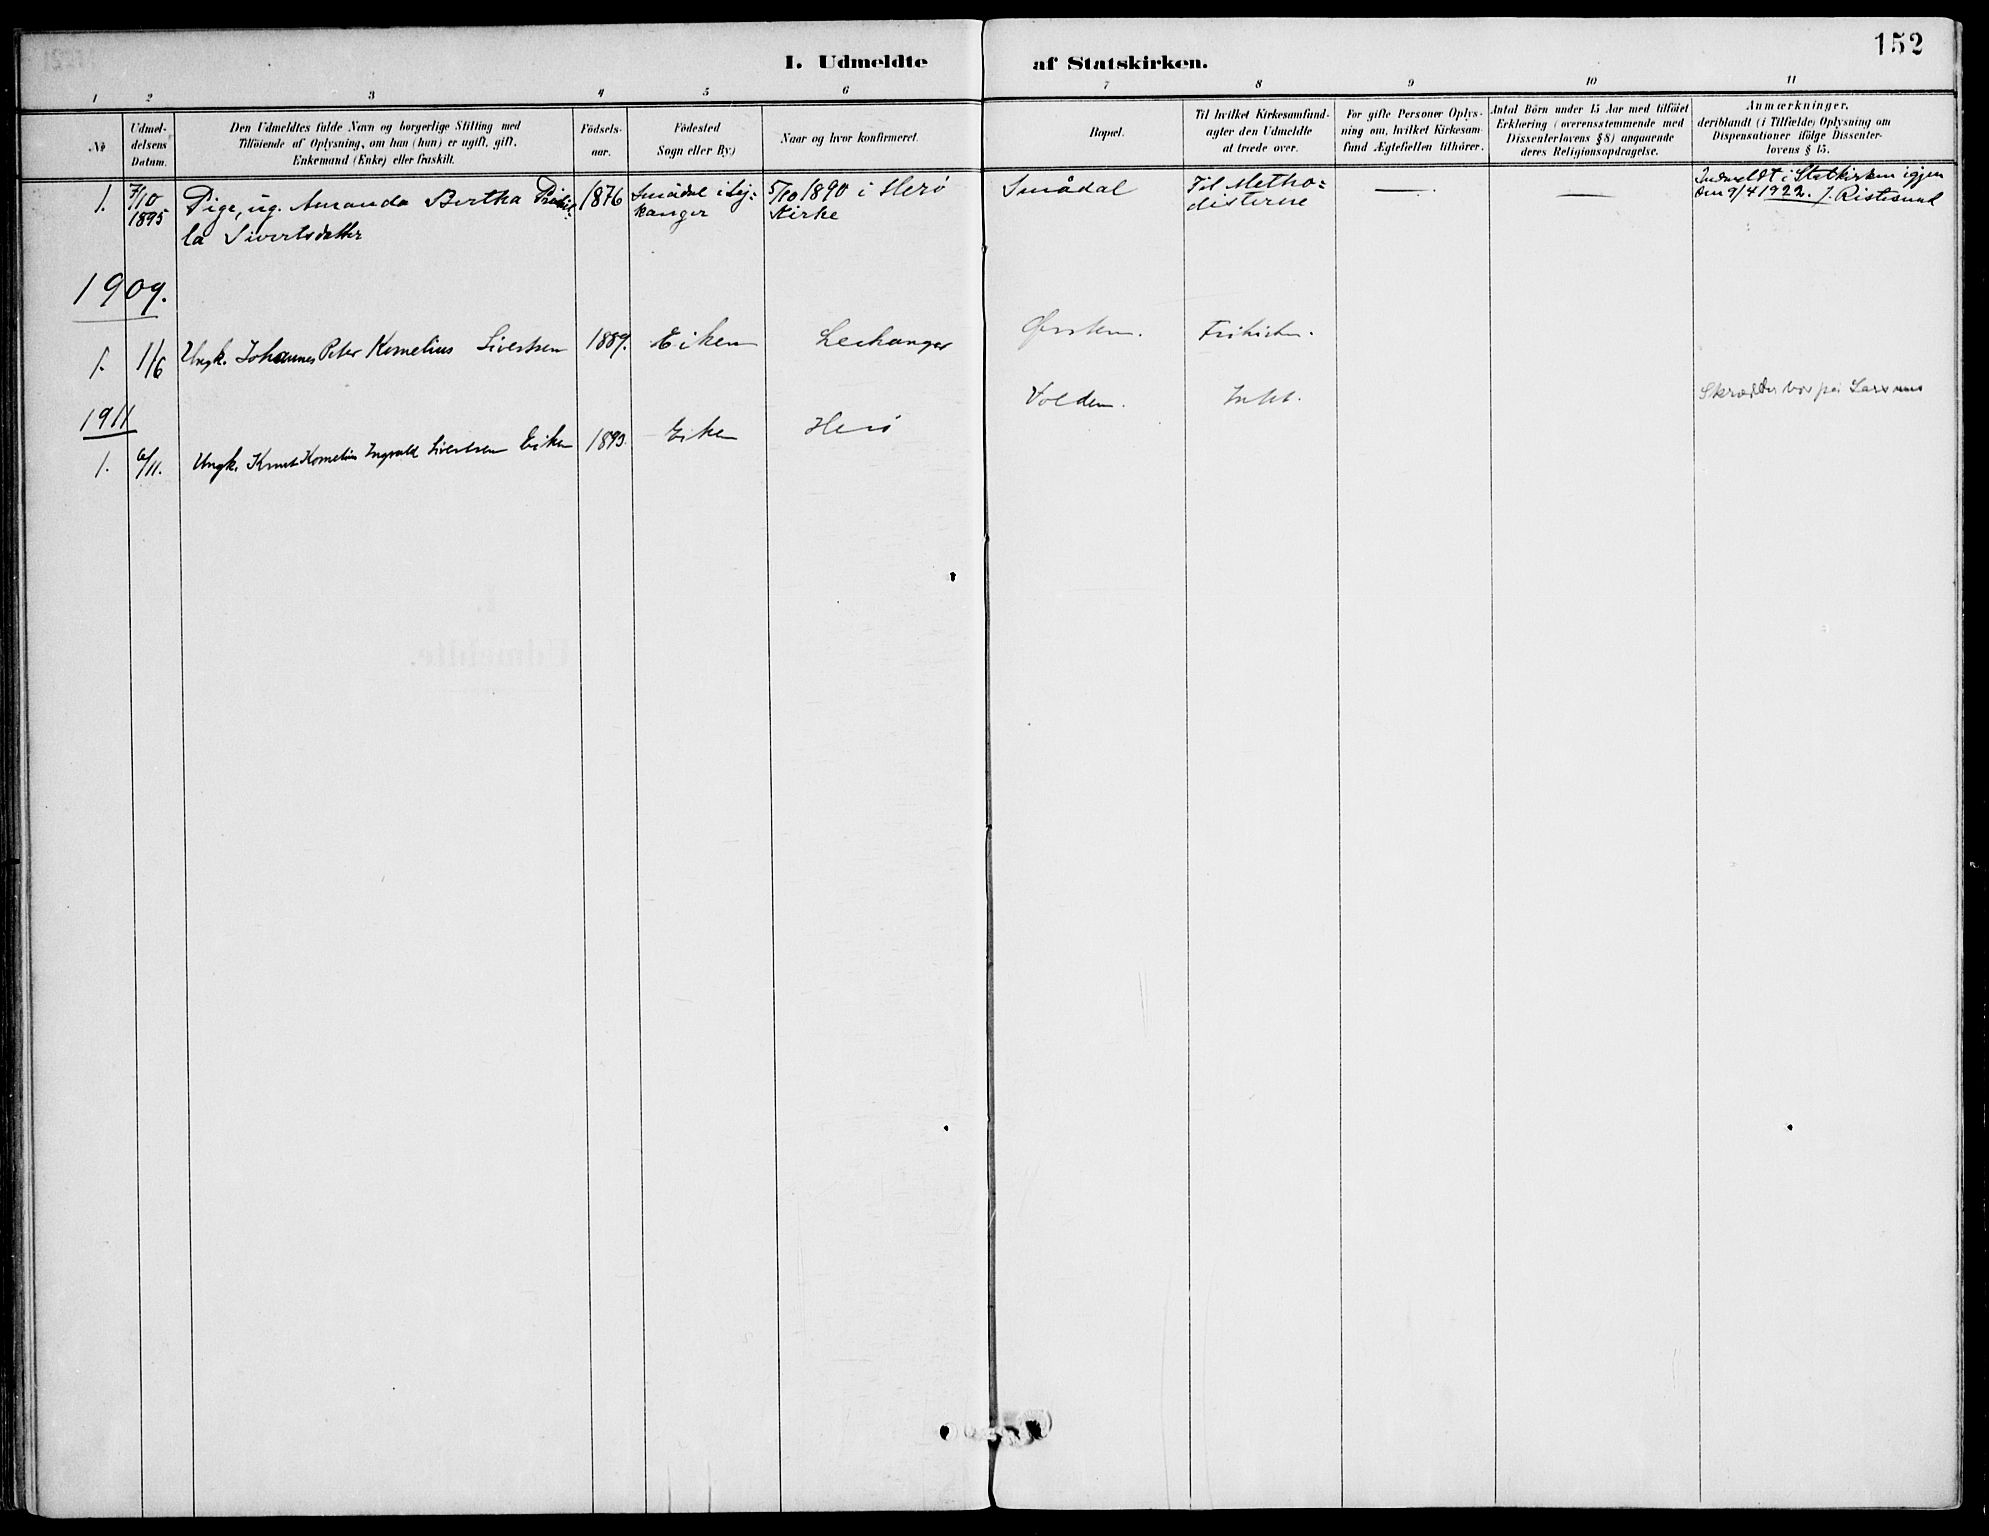 152
I. Udmeldte af Statskirken.
1 2 3 4 5 6 7 8 9 10 11
№
Udmel-
delsens
Datum.
Den Udmeldtes fulde Navn og borgerlige Stilling med
Tilföiende af Oplysning, om han (hun) er ugift, gift,
Enkemand (Enke) eller fraskilt.
Födsels-
aar.
Födested
Sogn eller By.)
Naar og hvor konfirmeret.
Bopæl.
Til hvilket Kirkesamfund
agter den Udmeldte
at træde over.
For gifte Personer Oplys-
ning om, hvilket Kirkesam-
fund Ægtefællen tilhörer.
Antal Börn under 15 Aar med tilföiet
Erklæring (overensstemmende med
Dissenterlovens § 8) angaaende
deres Religionsopdragelse.
Anmærkninger,
deriblandt (i Tilfælde) Oplysning om
Dispensationer ifölge Dissenter-
lovens § 15.
1.
7/10
1895
Pige, ug. Amanda Bertha
la Sivertsdatter
1876
Smådal i Lej-
kanger
5/10 1890 i Herö
Kirke
Smådal
Til Metho=
disterne
—
—
Indmeldt i Statkirken igjen
den 9/4 1922. J. Ristesund
1909.
1. 1/6 Ungk. Johannes Peter Kornelius Sivertsen 1889. Eiken Leikanger Ørsten. Frikirken.
1911
1. 6/11. Ungk. Knut Kornelius Ingvald Sivertsen Eiken 1893. Eiken Herö Volden.
Skrædder bor på
I.
Udmeldte.